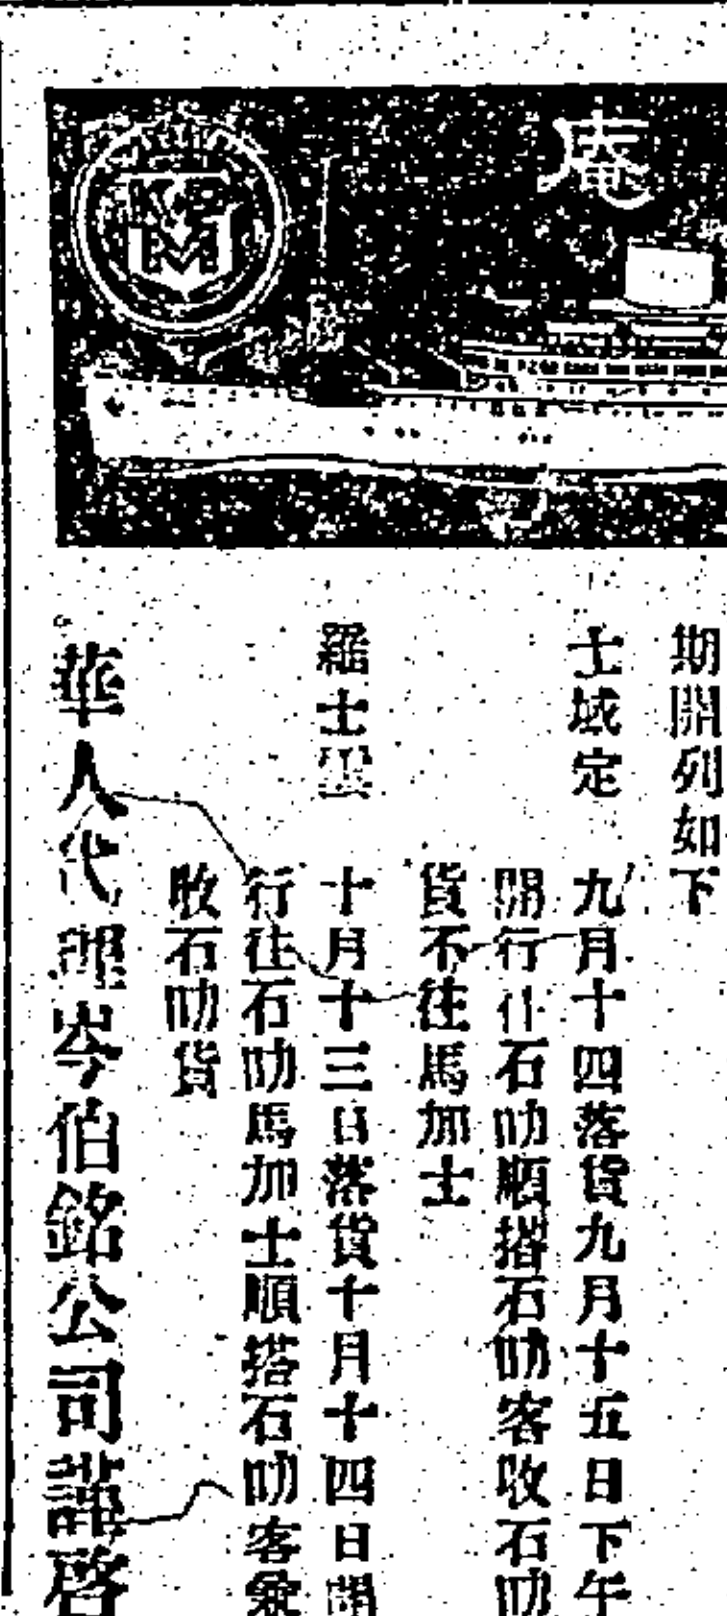 庵
KPM
期開列如下
士域定
九月十四落貨九月十五日下午
開行往石叻順搭石叻客收石叻
貨不往馬加士
羅士雲
十月十三日落貨十月十四日開
行往石叻馬加士順搭石叻客兼
收石叻貨
華人代理岑伯銘公司謹啓